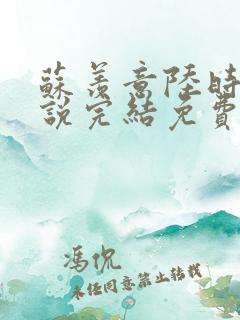 蘇羨意陸時
說完結免費
馮侃
未經同意禁止轉載